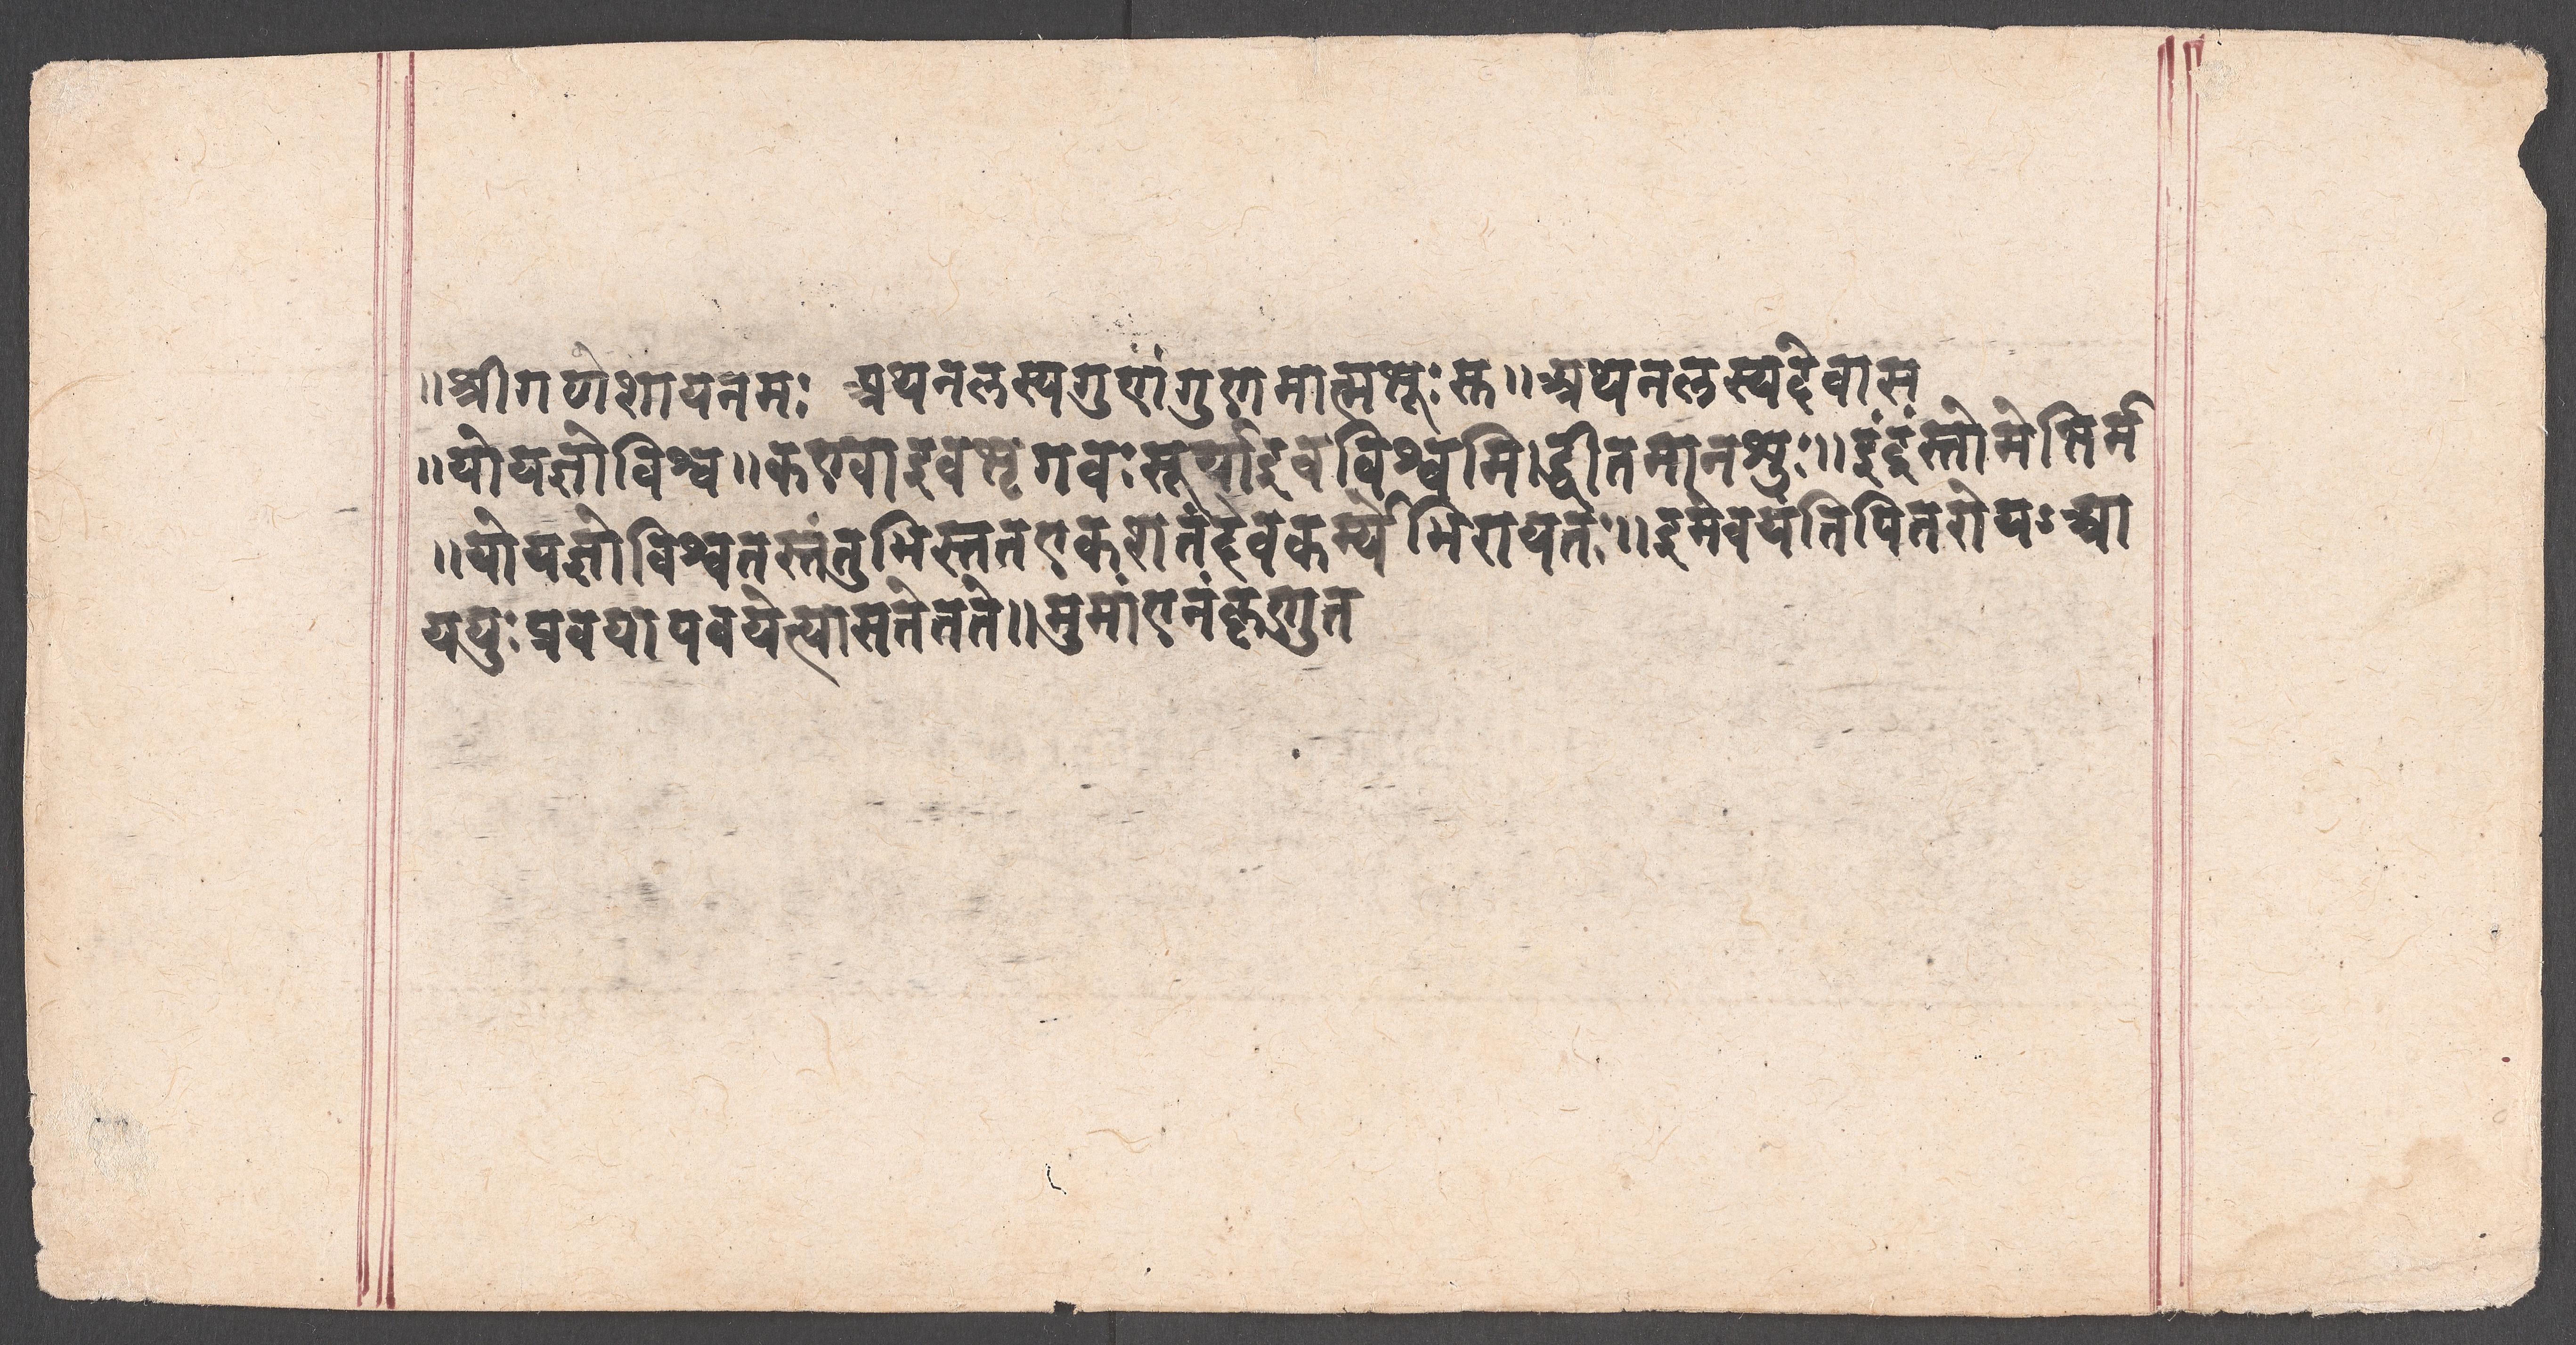 ॥श्रीगणेशायनमः अथनलस्यगुणंगुणमात्मभूः स्त॥अथनलस्यदेवास
॥योयज्ञोविश्व॥कण्वाइवभृगवःसूर्याइवविश्वमि।द्धीतमानशुः॥इंद्रंस्तोमेभिर्म
॥योयज्ञोविश्वतस्तंतुभिस्ततएकशतंदेवकर्म्येभिरायतः॥इमेवयंतिपितरोयऽआ
ययुःप्रवयापवयेत्यासतेतते॥मुमांएनंकृणुत